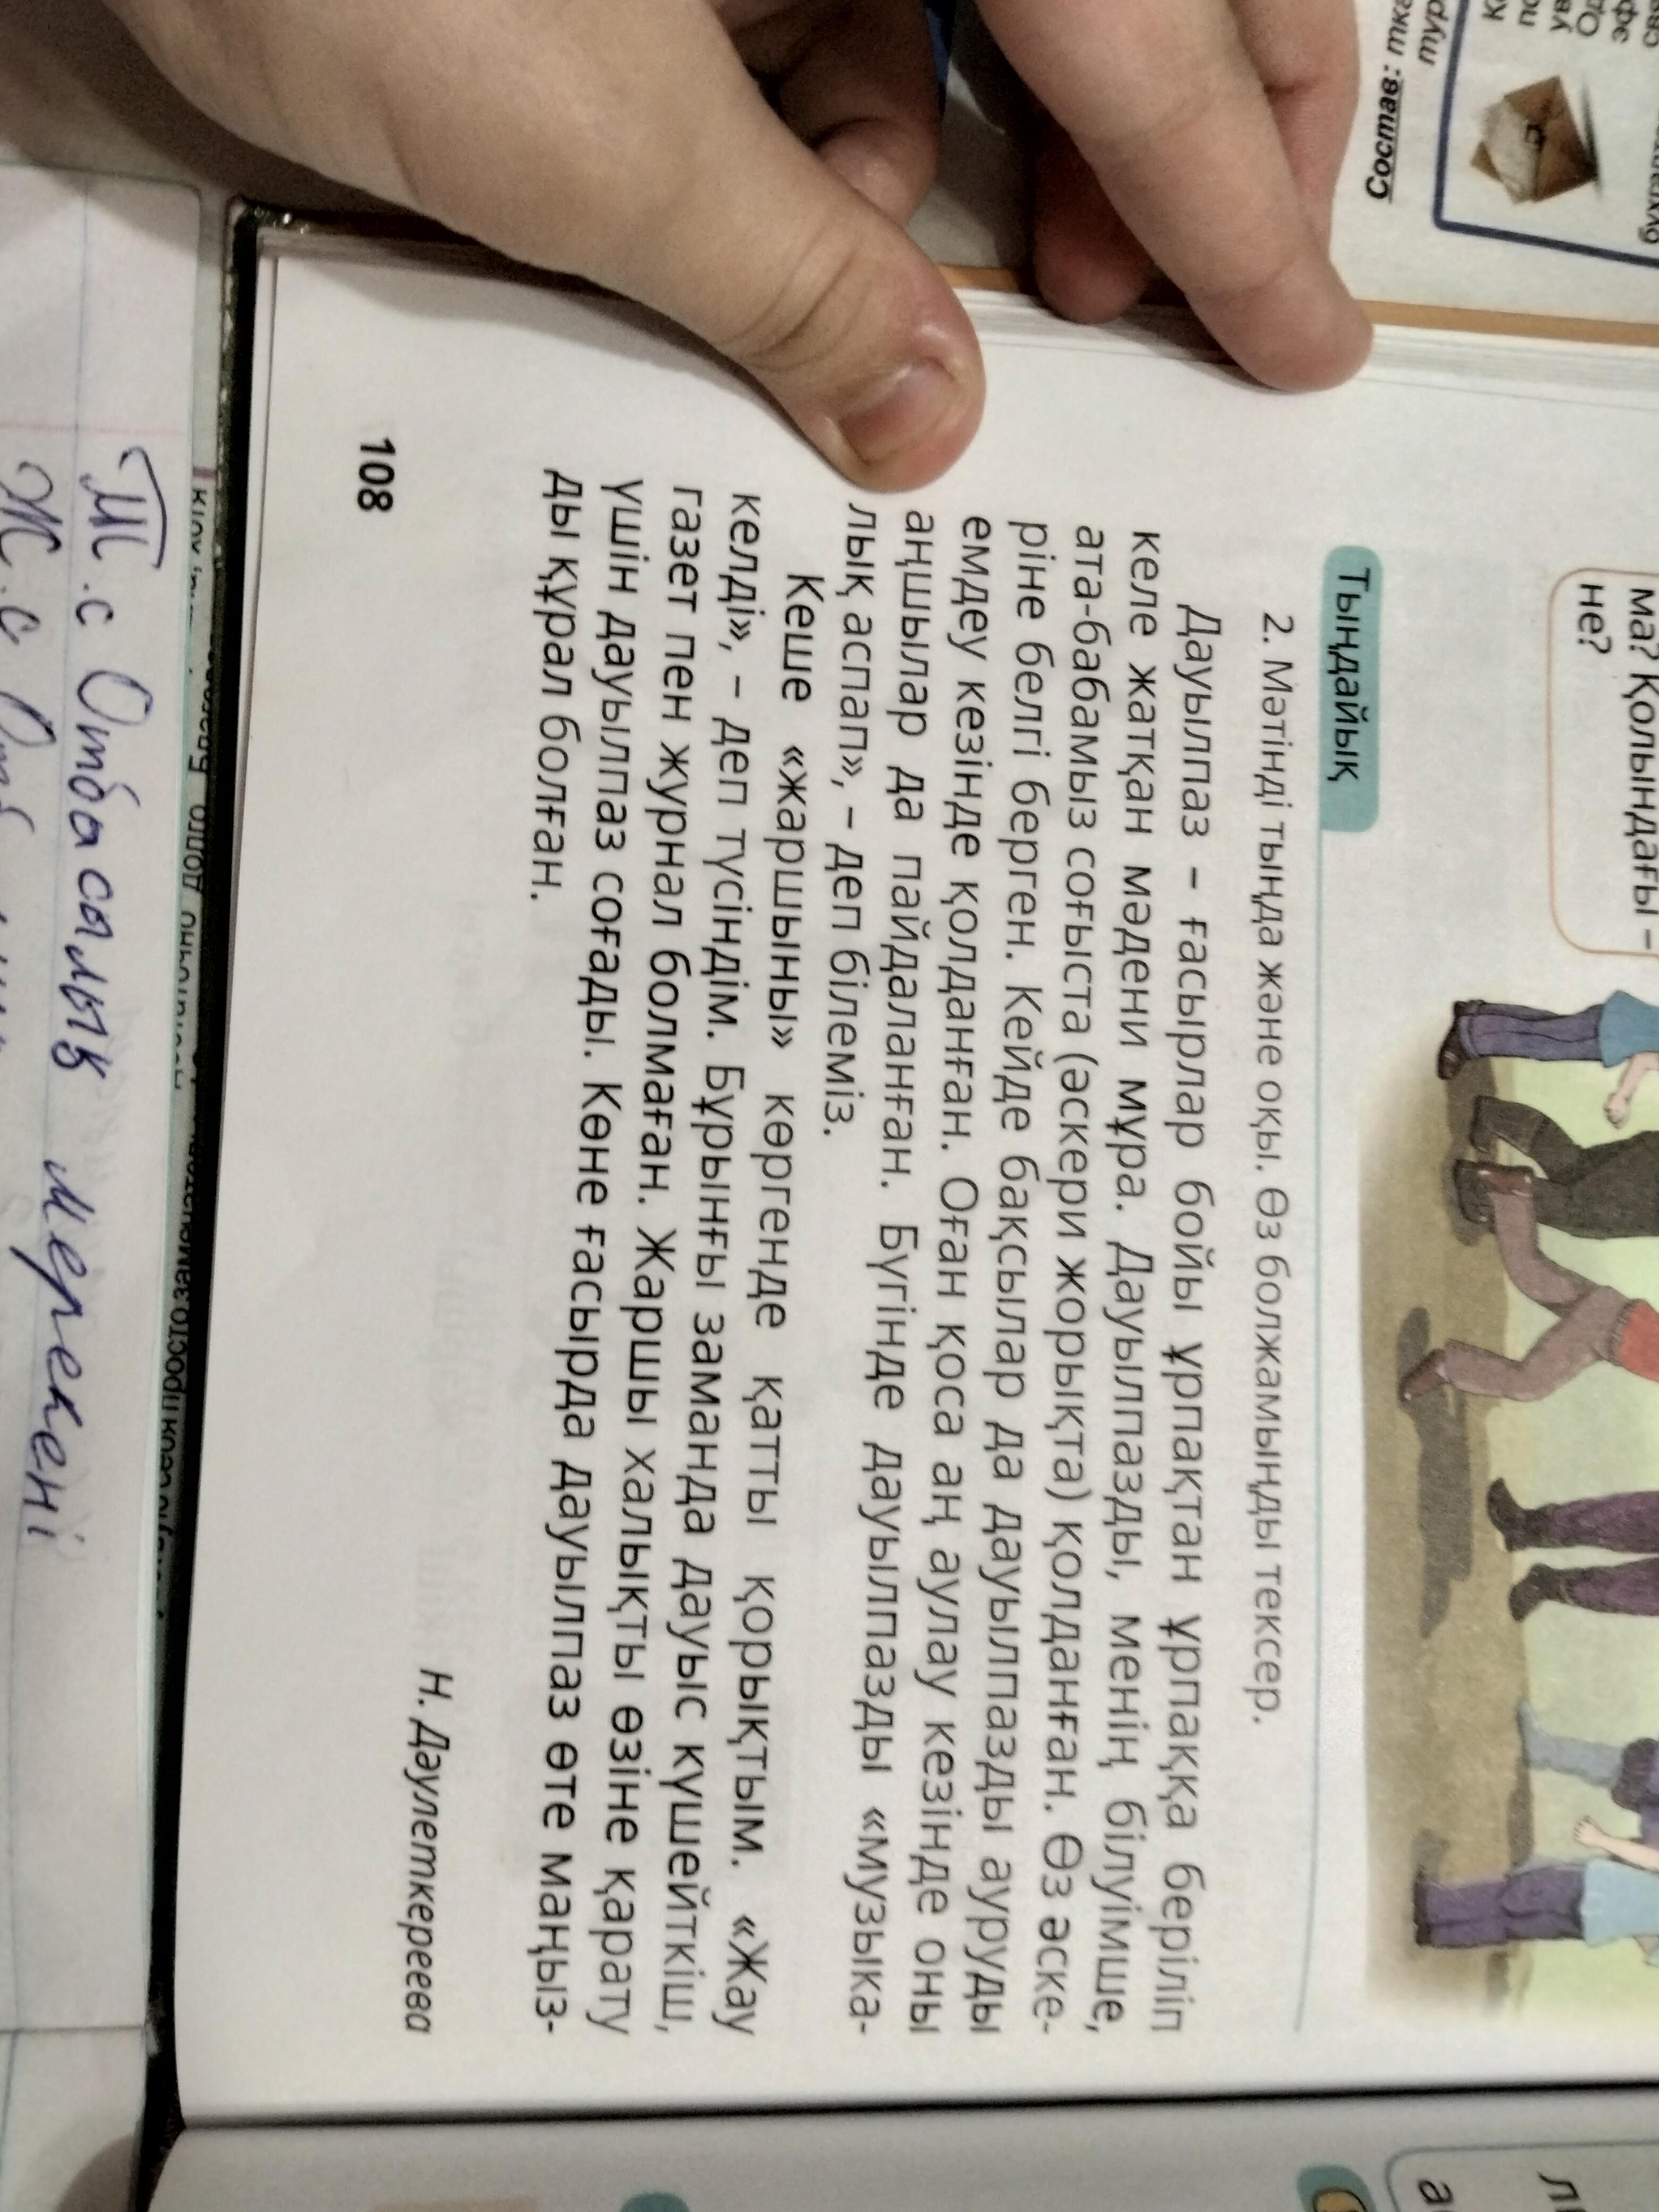 Состав:
ма? Қолындағы –
не?
Тыңдайық
2. Мәтінді тыңда және оқы. Өз болжамыңды тексер.
Дауылпаз – ғасырлар бойы ұрпақтан ұрпаққа беріліп
келе жатқан мәдени мұра. Дауылпазды, менің білуімше,
ата-бабамыз соғыста (әскери жорықта) қолданған. Өз әске-
ріне белгі берген. Кейде бақсылар да дауылпазды ауруды
емдеу кезінде қолданған. Оған қоса аң аулау кезінде оны
аңшылар да пайдаланған. Бүгінде дауылпазды «музыка-
лық аспап», – деп білеміз.
Кеше «жаршыны» көргенде қатты қорықтым. «Жау
келді», – деп түсіндім. Бұрынғы заманда дауыс күшейткіш,
газет пен журнал болмаған. Жаршы халықты өзіне қарату
үшін дауылпаз соғады. Көне ғасырда дауылпаз өте маңыз-
ды құрал болған.
Н. Дәулеткереева
108
Т.с Отбасылық мерекені
Ж.с